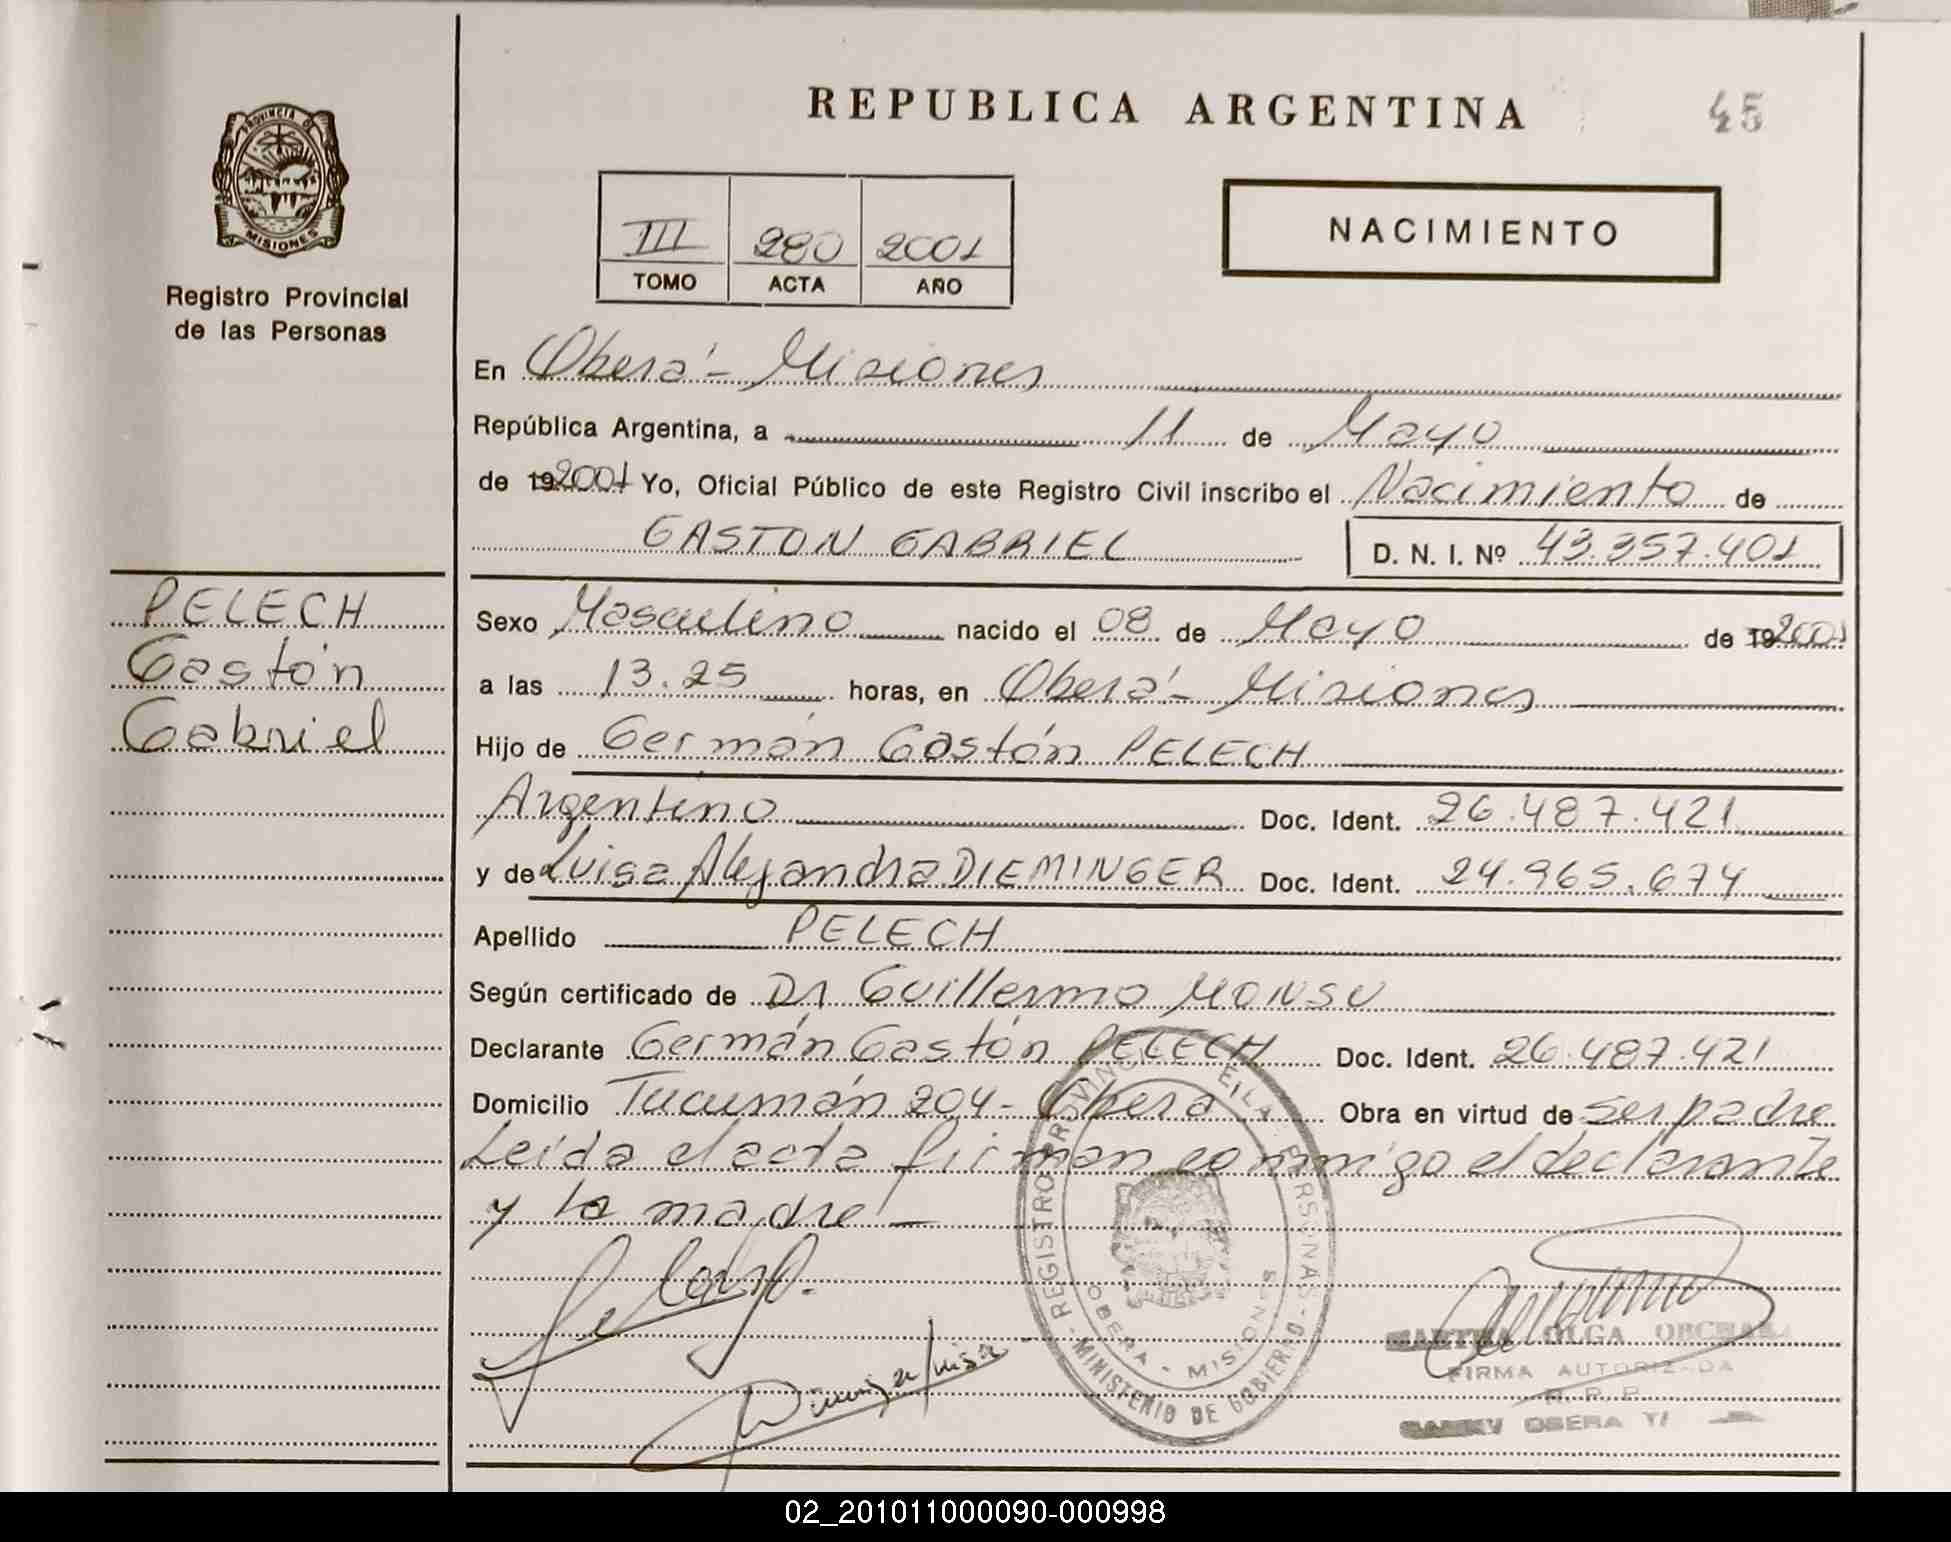 REPUBLICA ARGENTINA
45
PROVINCIA D
MISIONES
Registro Provincial
de las Personas
III 280 2001
TOMO ACTA AÑO
NACIMIENTO
En Oberá - Misiones
República Argentina, a 11 de Mayo
de 19 2001 Yo, Oficial Público de este Registro Civil inscribo el Nacimiento de
GASTON GABRIEL
D. N. I. Nº 43.357.401
PELECH
Gastón
Gabriel
Sexo Masculino nacido el 08 de Mayo de 19 2001
a las 13.25 horas, en Oberá - Misiones
Hijo de Germán Gastón PELECH
Argentino Doc. Ident. 26.487.421
y de Luisa Alejandra DIEMINGER Doc. Ident. 24.965.674
Apellido PELECH
Según certificado de Dr Guillermo MONSU
Declarante Germán Gastón PELECH Doc. Ident. 26.487.421
Domicilio Tucumán 204 - Oberá Obra en virtud de ser padre
Leida el acta firman conmigo el declarante
y la madre -
REGISTRO PROVINCIAL PERSONAS - MINISTERIO DE GOBIERNO -
OBERA - MISIONES
MARTHA OLGA
FIRMA AUTORIZADA
R. R. P.
OBERA
02_201011000090-000998